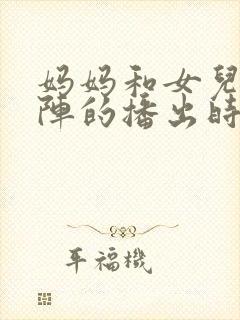 妈妈和女兒
陣的播出時
平福機